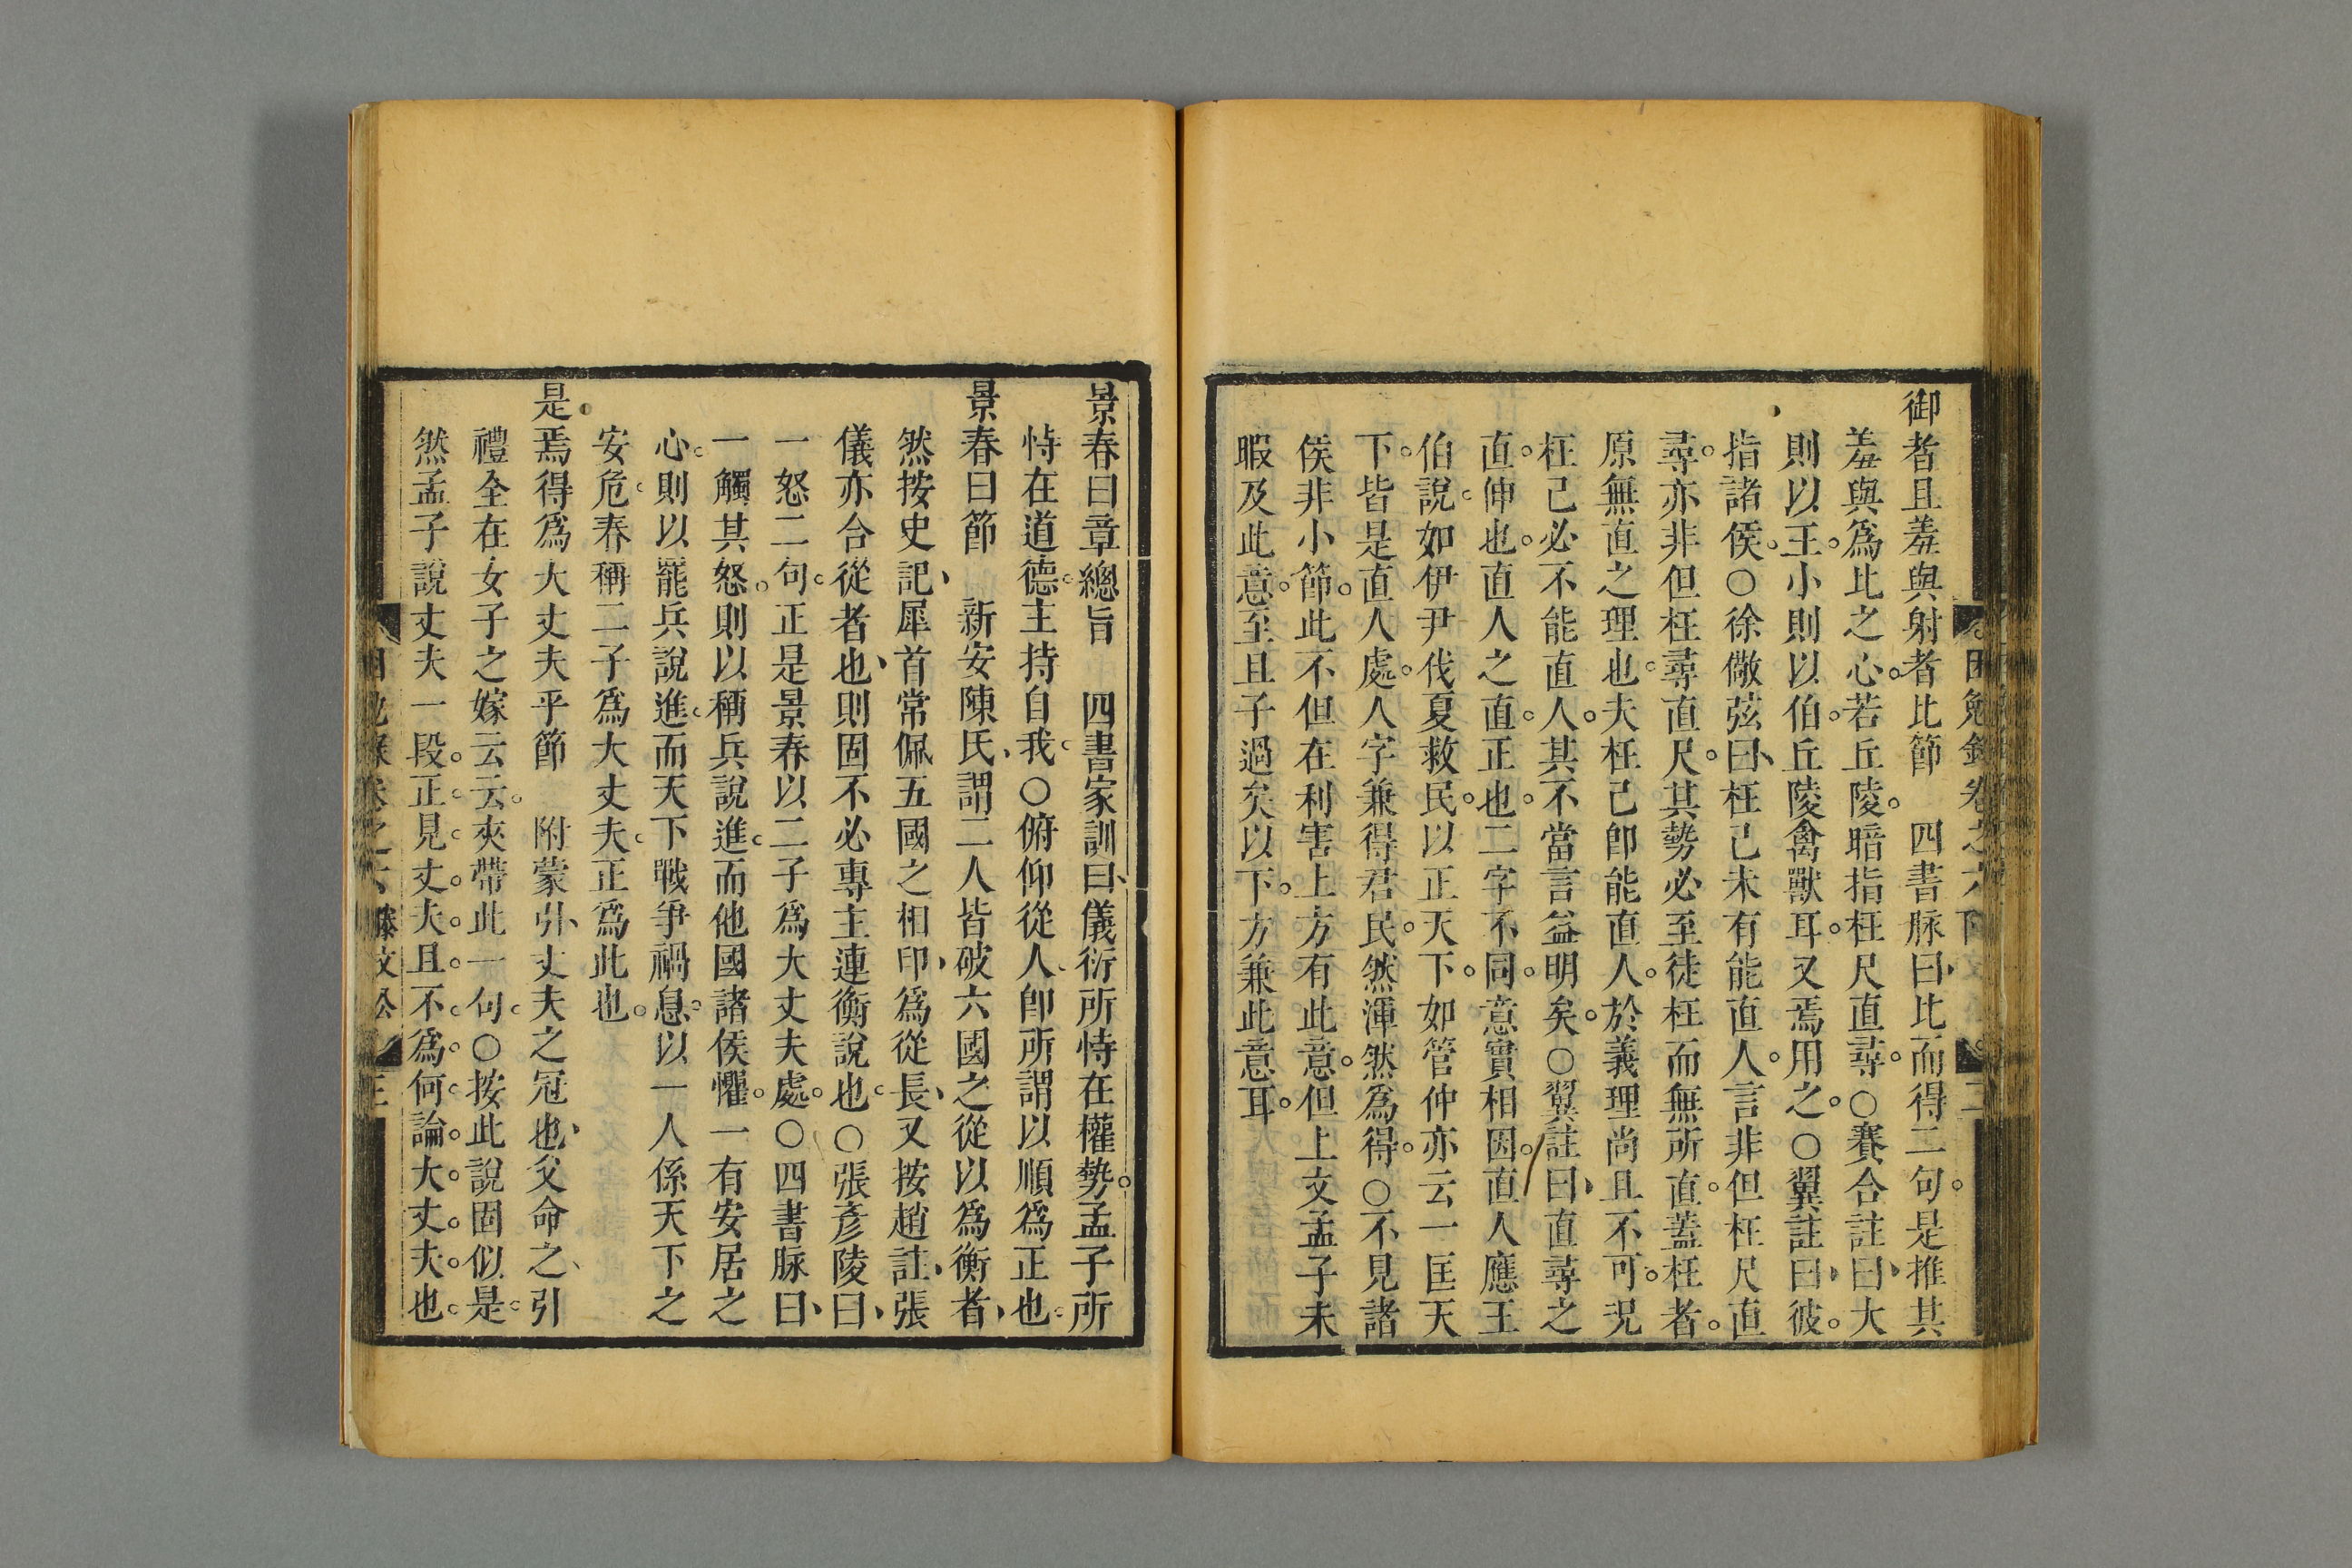 御者且羞與射者比節　四書脉曰比而得二句是推其
羞與爲比之心若丘陵暗指枉尺直尋○賽合註曰大
則以王小則以伯丘陵禽獸耳又焉用之○翼註曰彼
指諸侯○徐儆弦曰枉己未有能直人言非但枉尺直
尋亦非但枉尋直尺其勢必至徒枉而無所直蓋枉者
原無直之理也夫枉己卽能直人於義理尚且不可況
枉己必不能直人其不當言益明矣○翼註曰直尋之
直伸也直人之直正也二字不同意實相因直人應王
伯說如伊尹伐夏救民以正天下如管仲亦云一匡天
下皆是直人處人字兼得君民然渾然爲得○不見諸
侯非小節此不但在利害上方有此意但上文孟子未
暇及此意至且子過矣以下方兼此意耳
景春曰章總旨　四書家訓曰儀衍所恃在權勢孟子所
恃在道德主持自我○俯仰從人卽所謂以順爲正也
景春曰節　新安陳氏謂二人皆破六國之從以爲衡者
然按史記犀首常佩五國之相印爲從長又按趙註張
儀亦合從者也則固不必專主連衡說也○張彥陵曰
一怒二句正是景春以二子爲大丈夫處○四書脉曰
一觸其怒則以稱兵說進而他國諸侯懼一有安居之
心則以罷兵說進而天下戰爭禍息以一人係天下之
安危春稱二子爲大丈夫正爲此也
是焉得爲大丈夫乎節　附蒙引丈夫之冠也父命之引
禮全在女子之嫁云云夾帶此一句○按此說固似是
然孟子說丈夫一段正見丈夫且不爲何論大丈夫也